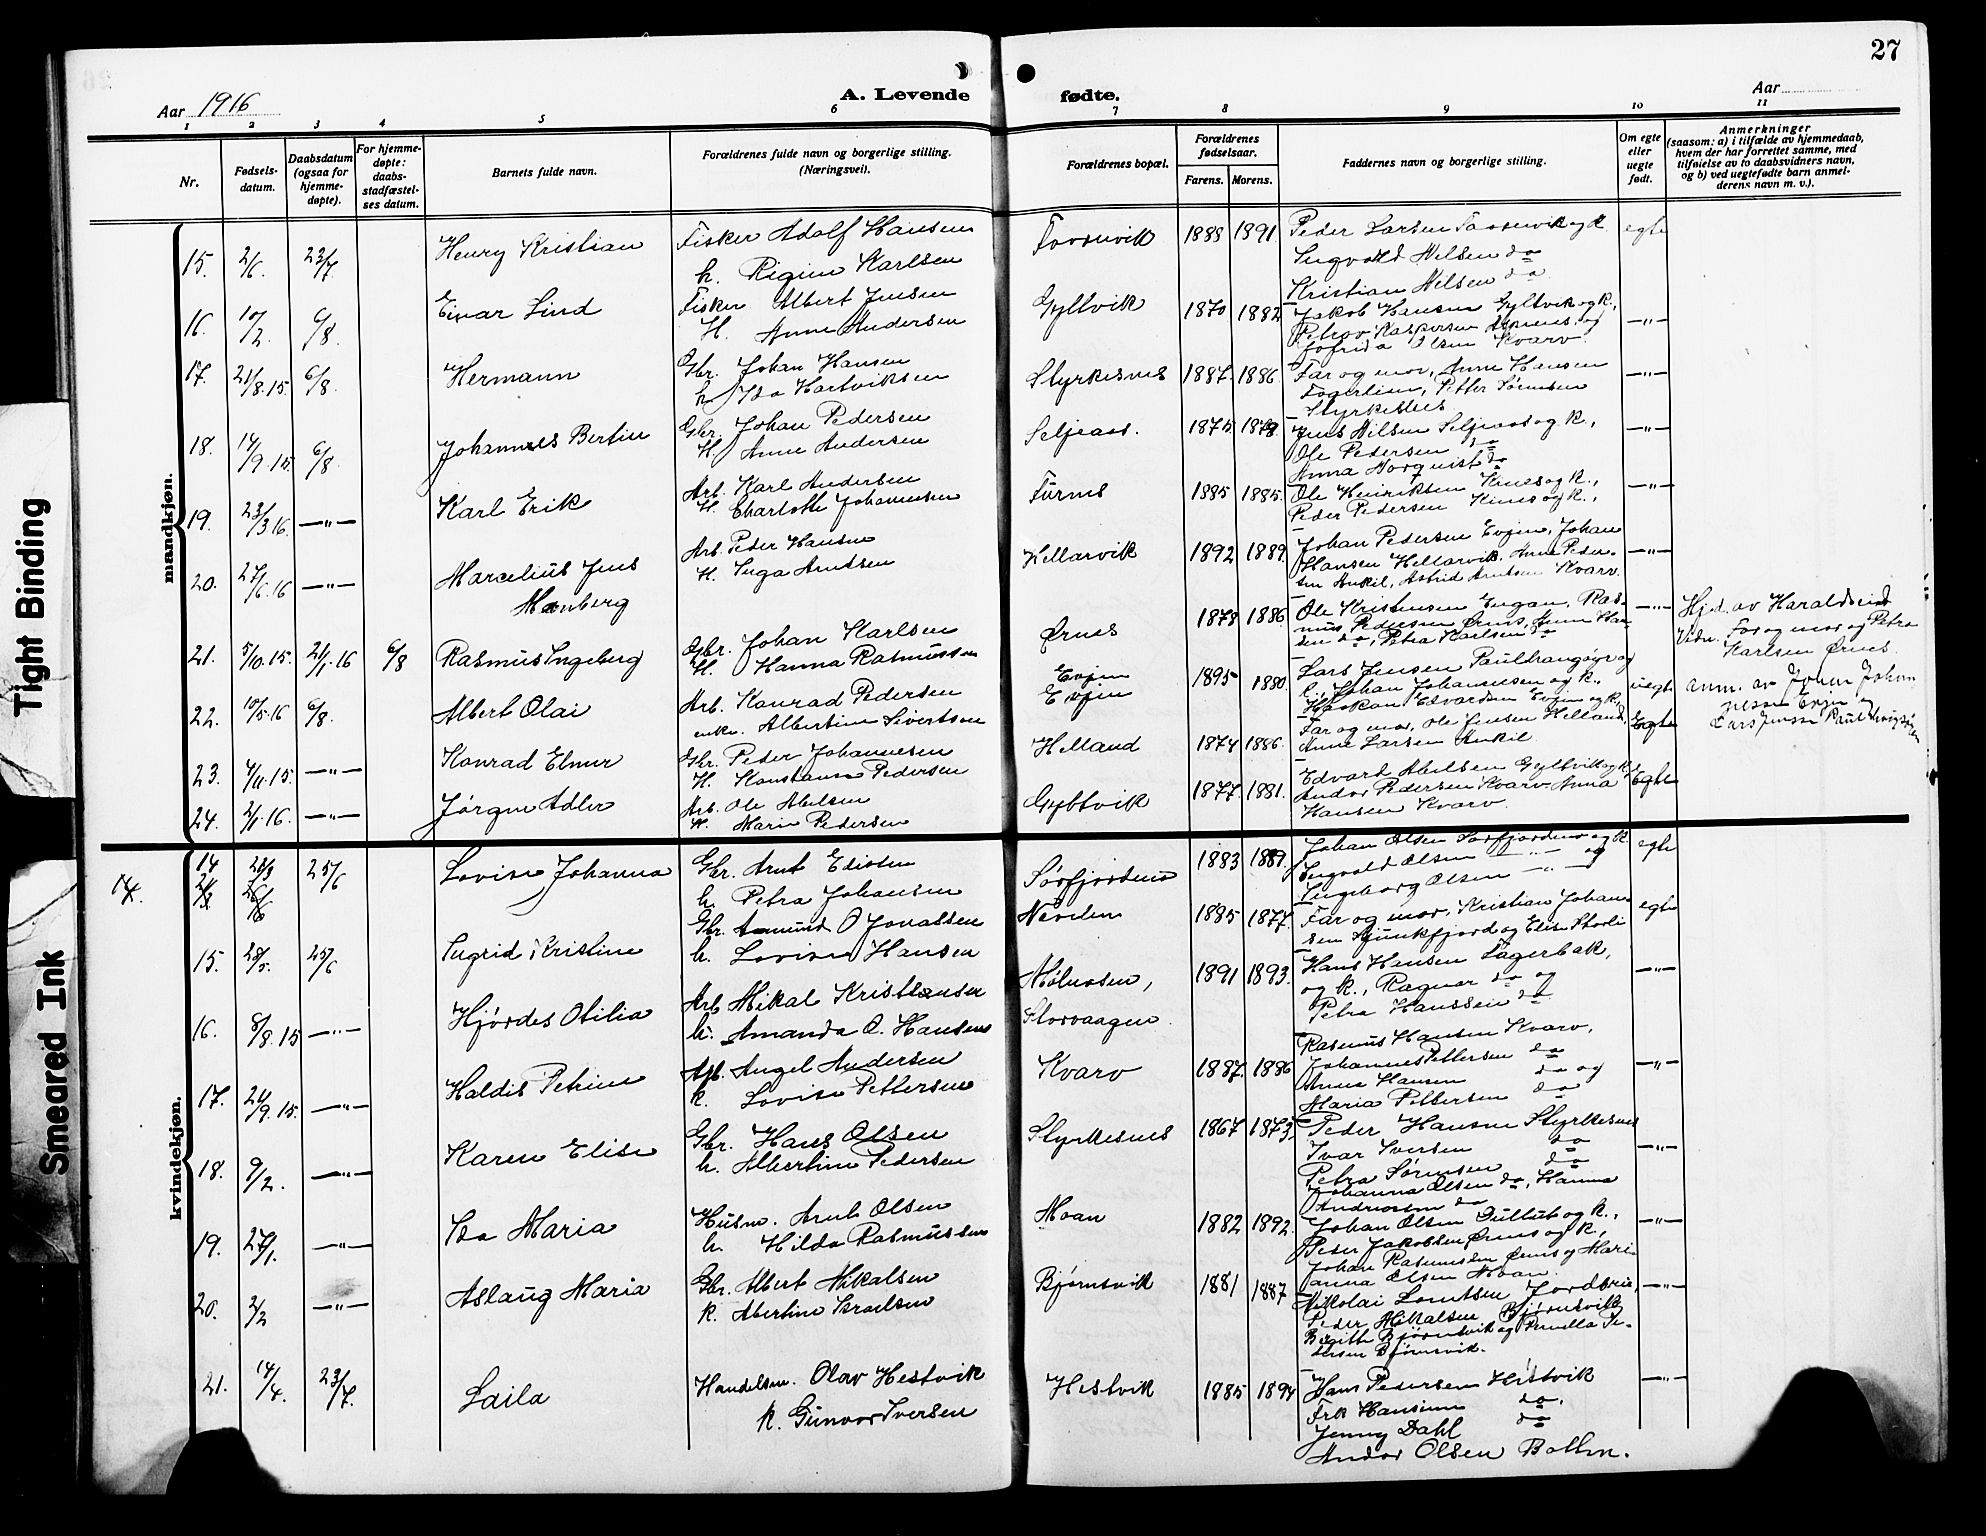 27
Aar 1916
A. Levende fødte.
Aar
1 2 3 4 5 6 7 8 9 10 11
Nr.
Fødsels-
datum.
Daabsdatum
(ogsaa for
hjemme-
døpte).
For hjemme-
døpte:
daabs-
stadfæstel-
ses datum.
Barnets fulde navn.
Forældrenes fulde navn og borgerlige stilling.
(Næringsvei).
Forældrenes bopæl.
Forældrenes
fødselsaar.
Farens. Morens.
Faddernes navn og borgerlige stilling.
Om egte
eller
uegte
født.
Anmerkninger
(saasom: a) i tilfælde av hjemmedaab,
hvem der har forrettet samme, med
tilføielse av to daabsvidners navn,
og b) ved uegtefødte barn anmel-
derens navn m. v.).
mandkjøn.
15. 2/6. 23/7 Henry Kristian Fisker Adolf Hansen 1891 Peder Larsen egte
h. Karlsen Ingvald Nilsen do
Kristian Nilsen do
16. 10/2. 6/8. Einar Lind Fisker Albert Jensen Gyltvik 1870 1882 Jakob Hansen Gyltvik og k., —"—
H. Anne Andersen Kaspersen og
Olsen Kvarv.
17. 21/8.15. 6/8. Hermann Gbr. Johan Hansen Styrkesnes 1887 1886 Far og mor, Anne Hansen —"—
h. Ida Hartviksen Fagerlien, Petter Sørensen
Styrkesnes
18. 14/9.15. 6/8. Johannes Bertin Gbr. Johan Pedersen Seljeaas. 1875 Jens Nilsen Seljeaas og k., —"—
H. Anne Andersen Ole Pedersen do
Anna do
19. 23/3 16. —"— Karl Erik Arb. Karl Andersen Furnes 1885 1885. Ole Henriksen og k., —"—
H. Charlotte Johannessen Peder Pedersen og k.,
20. 27/6.16 —"— Marcelius Jens Arb. Peder Hansen Hellarvik 1892 1889 Johan Pedersen Evjen, Johan —"—
Manberg H. Inga Arntsen Hansen Hellarvik, Anne Peder-
sen Ankil, Astrid Arntsen Kvarv.
21. 5/10.15. 2/1.16 6/8 Rasmus Ingeberg Gbr. Johan Karlsen Ørnes 1878 1886 Ole Kristensen Engan, Ras- —"— Hjd. av
H. Hanna Rasmussen mus Pedersen Ørnes, Han- Vidn. Far og mor og Petra
sen do, Petra Karlsen do Karlsen Ørnes.
22. 10/5.16 6/8. Albert Olai Arb. Konrad Pedersen Evjen 1895 1880. Lars Jensen og uegte anm. av Johan
enke. Albertine Sivertsen Evjen k., Johan Johannesen og k., Evjen og
Haakon Edvardsen Evjen og k, Lars Jensen
23. 4/11.15. —"— Konrad Elmer Gbr. Peder Johannesen Helland 1874 1886 Far og mor, Ole Jensen Helland, Egte
H. Konstanse Pedersen Anne Larsen Ankil.
24. 2/1.16. —"— Jørgen Adler Arb. Ole Nilsen Gyltvik 1877. 1881. Edvard Nilsen Gyltvik og k, Egte
K. Marie Pedersen Andor Pedersen Kvarv Anna
Hansen Kvarv.
kvindekjøn.
14. 14 25/6 Lovise Johanna Gbr. Arnt h. Petra Johansen Sørfjorden 1883 1889. Johan Olsen Sørfjorden og k. egte
Ingvald Olsen —"— og
Ingeborg Olsen —"—
15. 28/5. 25/6 Ingrid Kristine Gbr. Amund O Jonassen 1885 1877. Far og mor, Kristian Johan- egte
h. Lovise Hansen sen og Elise
16. 8/8.15 —"— Hjørdes Otilia Arb. Mikal Kristiansen 1891 1893. Hans Hansen Lagerbak, —"—
h. Amanda O. Hansen Storvaagen. og k., Ragnar do og
Petra Hanssen do
17. 24/9.15. —"— Haldis Petrine Arb. Angel Andersen Kvarv 1887. 1886 Rasmus Hansen Kvarv,
k. Lovise Pettersen Johannes Pettersen do —"—
Anna Hansen do og
Maria Pettersen do
18. 9/2. —"— Karen Elise Gbr. Hans Olsen Styrkesnes 1867 1873. Peder Hansen Styrkesnes —"—
h. Albertine Pedersen Ivar Iversen do
Petra Sørensen do
Johanna Olsen do, Hanna
Andreassen do
19. 27/1. —"— Ida Maria Husm. Arnt Olsen Moan 1882 1892. Johan Olsen og k., —"—
h. Hilda Rasmussen Peder Jakobsen Ørnes og k,
Johan Rasmussen Ørnes og Mari-
anna Olsen Moan.
20. 2/2 —"— Aslaug Maria Gbr. Albert Mikalsen Bjørnsvik 1881 1887 Nikolai Lorntsen Jordbrú, —"—
k. Albertine Israelsen Peder Mikalsen Bjørnsvik
Birgitte Bjørnsvik og Pernella Pe-
dersen Bjørnsvik.
21. 14/4. 23/7. Laila Handelsm. Olav Hestvik Hestvik 1885 1894 Hans Pedersen Hestvik —"—
k. Gunvor Iversen Frk Hansine do.
Jenny Dahl do
Andor Olsen
Tight Binding
Smeared Ink